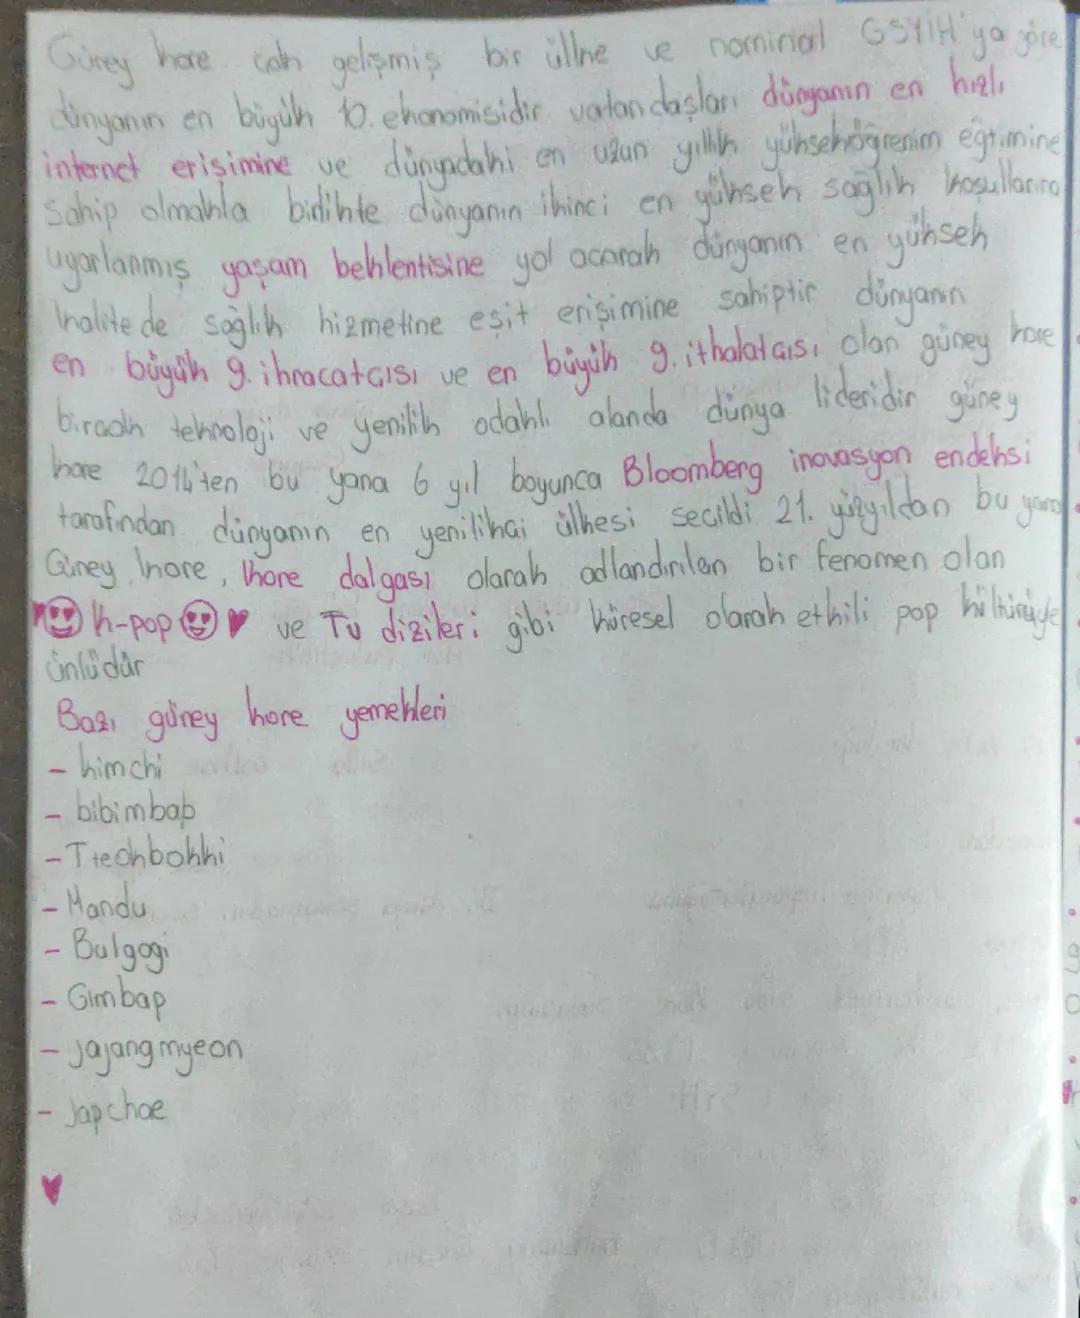 Güney kore çok gelişmiş bir ülke ve nominal GSYİH'ya göre
dünyanın en büyük 10. ekonomisidir vatandaşları dünyanın en hızlı
internet erişimine ve dünyadaki en uzun yıllık yükseköğrenim eğtimine
Sahip olmakla birlikte dünyanın ikinci en yüksek sağlık koşullarına
uyarlanmış yaşam beklentisine yol acarak dünyanın en yüksek
kalite de sağlık hizmetine eşit erişimine sahiptir dünyanın
en büyük 9. ihracatcısı ve en büyük 9. ithalatcısı olan güney kore
biracok teknoloji ve yenilik odaklı alanda dünya lideridir güney
kore 2014'ten bu yana 6 yıl boyunca Bloomberg inovasyon endeksi
tarafından dünyanın en yenilikai ülkesi secildi 21. yüzyıldan bu yana
Güney kore, kore dalgası olarak adlandırılan bir fenomen olan
♥😍 k-pop 😍♥ ve Tv dizileri gibi küresel olarak etkili pop kültürüyle
ünlüdür
Bazı güney kore yemekleri
- kimchi
- bibimbap
- Tteokbokki
- Mandu
- Bulgogi
- Gimbap
- jajangmyeon
- Japchae
♥